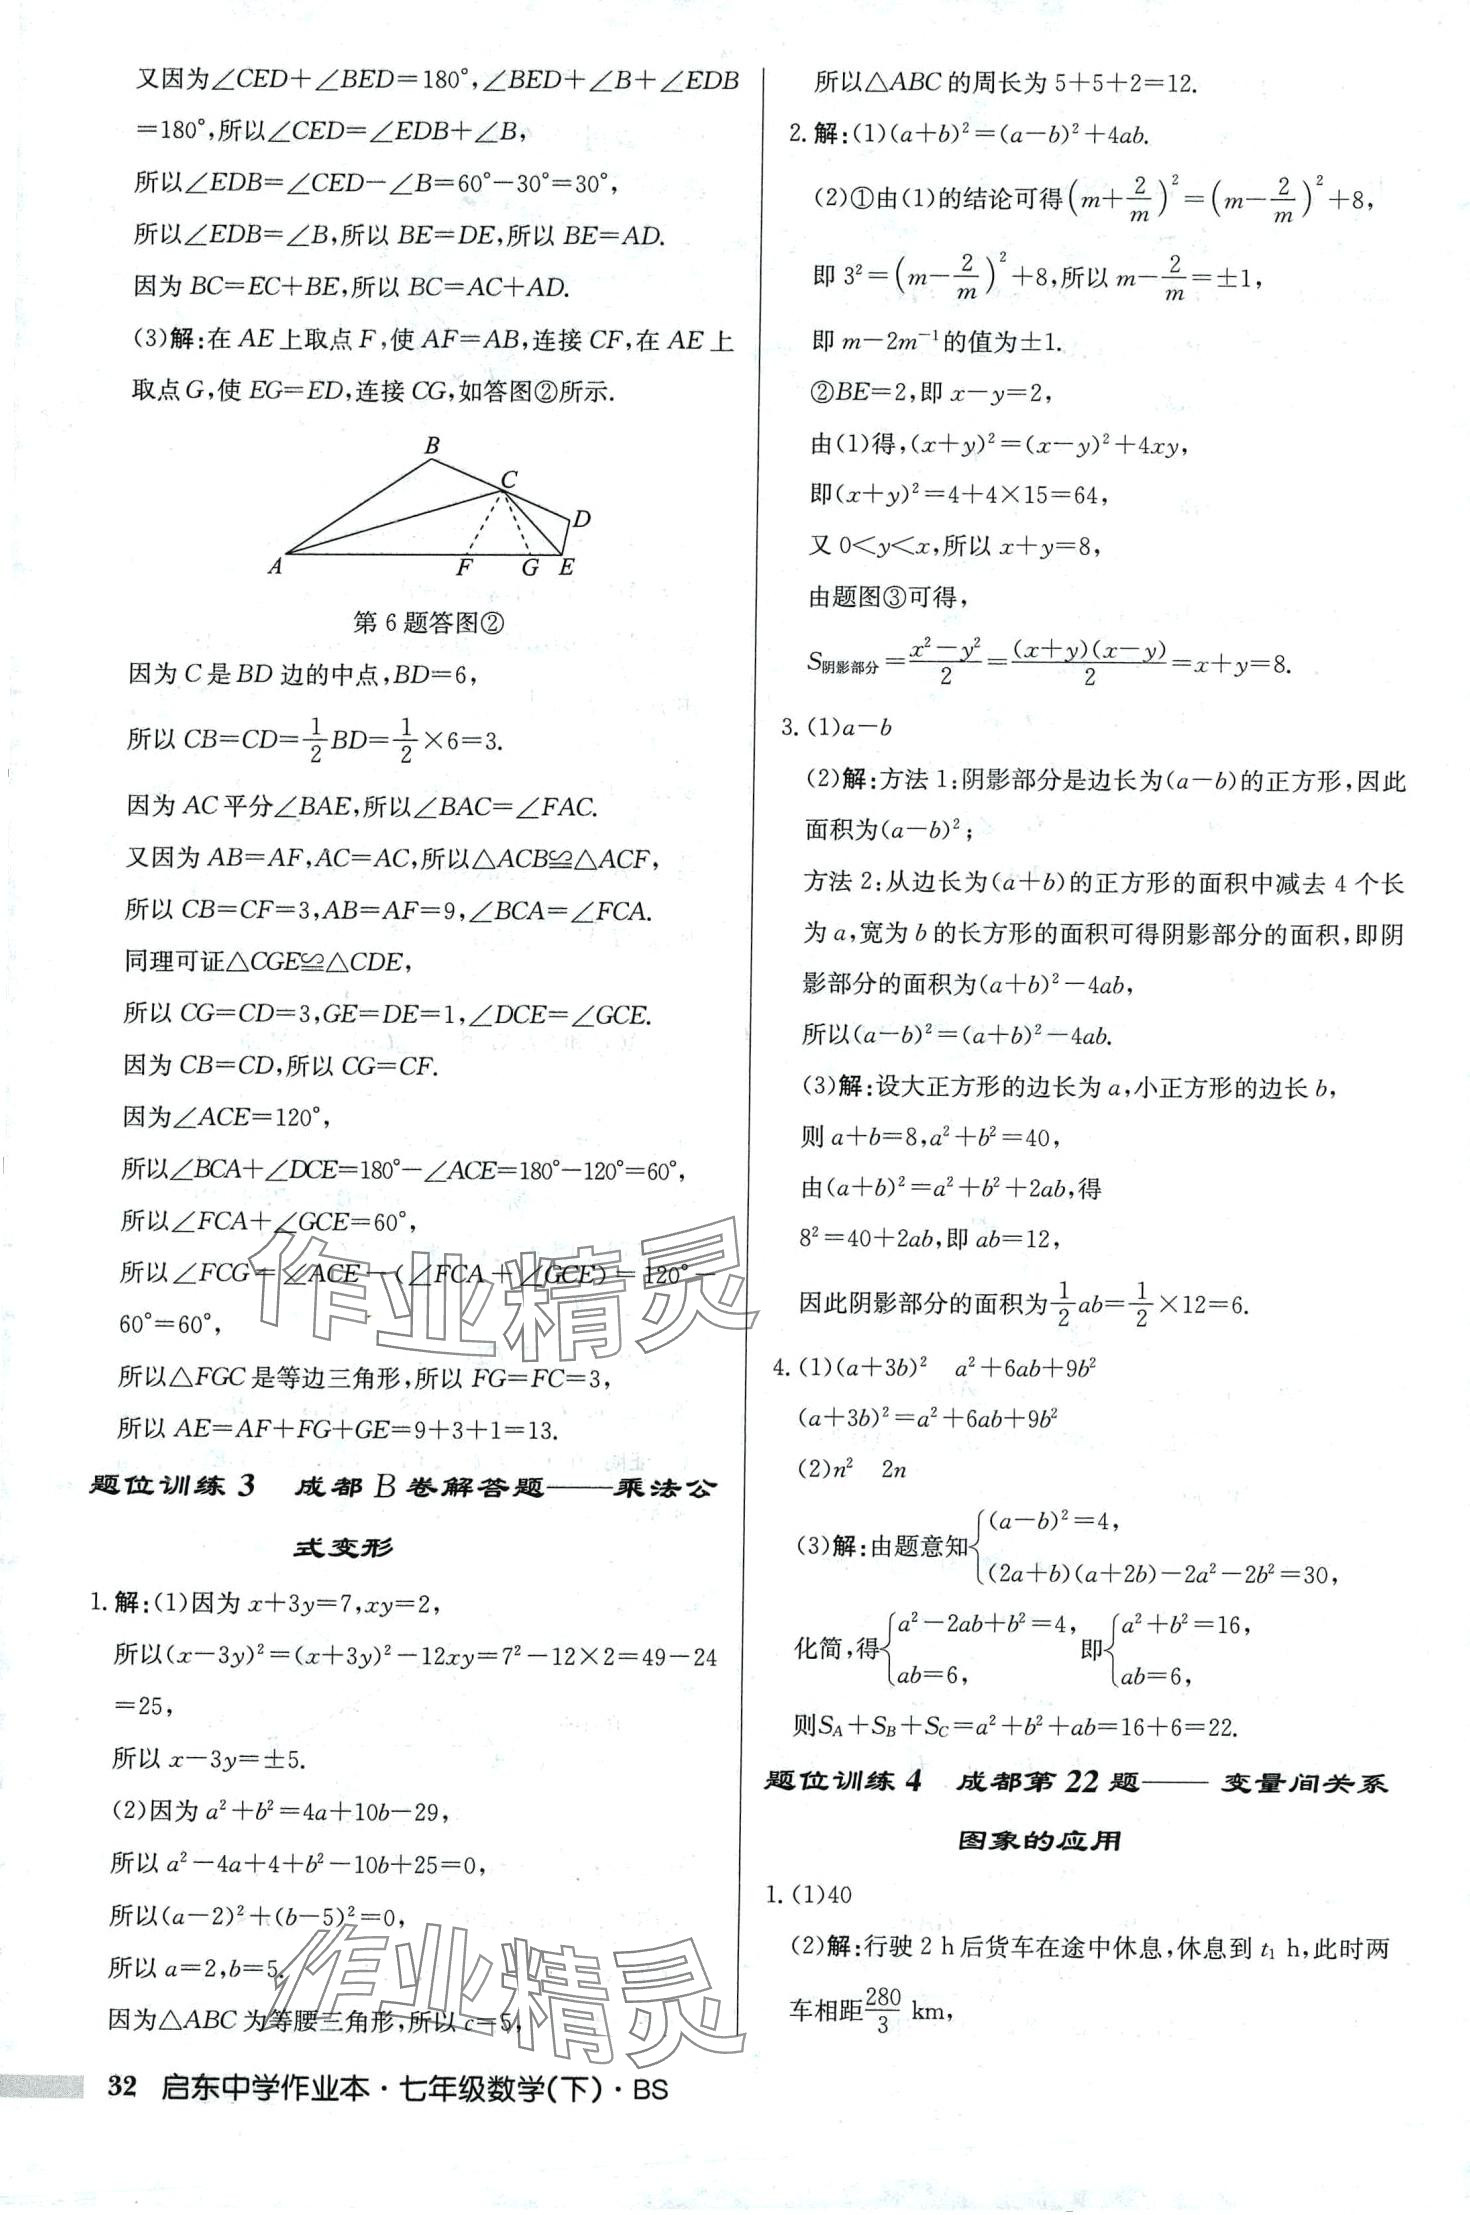 又因为∠CED+∠BED=180°,∠BED+∠B+∠EDB
=180°,所以∠CED=∠EDB+∠B,
所以∠EDB=∠CED-∠B=60°-30°=30°,
所以∠EDB=∠B,所以 BE=DE,所以 BE=AD.
因为 BC=EC+BE,所以 BC=AC+AD.
(3)解:在 AE 上取点 F,使 AF=AB,连接 CF,在 AE 上
取点 G,使 EG=ED,连接 CG,如答图②所示.
B
C
D
A
F
G
E
第 6 题答图②
因为 C 是 BD 边的中点,BD=6,
所以 CB=CD=1/2 BD=1/2×6=3.
因为 AC 平分∠BAE,所以∠BAC=∠FAC.
又因为 AB=AF,AC=AC,所以△ACB≌△ACF,
所以 CB=CF=3,AB=AF=9,∠BCA=∠FCA.
同理可证△CGE≌△CDE,
所以 CG=CD=3,GE=DE=1,∠DCE=∠GCE.
因为 CB=CD,所以 CG=CF.
因为∠ACE=120°,
所以∠BCA+∠DCE=180°-∠ACE=180°-120°=60°,
所以∠FCA+∠GCE=60°,
所以∠FCG=∠ACE-(∠FCA+∠GCE)=120°-
60°=60°,
所以△FGC 是等边三角形,所以 FG=FC=3,
所以 AE=AF+FG+GE=9+3+1=13.
题位训练 3 成都 B 卷解答题——乘法公
式变形
1.解:(1)因为 x+3y=7,xy=2,
所以(x-3y)²=(x+3y)²-12xy=7²-12×2=49-24
=25,
所以 x-3y=±5.
(2)因为 a²+b²=4a+10b-29,
所以 a²-4a+4+b²-10b+25=0,
所以(a-2)²+(b-5)²=0,
所以 a=2,b=5.
因为△ABC 为等腰三角形,所以 c=5,
32 启东中学作业本·七年级数学(下)·BS
所以△ABC 的周长为 5+5+2=12.
2.解:(1)(a+b)²=(a-b)²+4ab.
(2)①由(1)的结论可得(m+2/m)²=(m-2/m)²+8,
即 3²=(m-2/m)²+8,所以 m-2/m=±1,
即 m-2m⁻¹的值为±1.
②BE=2,即 x-y=2,
由(1)得,(x+y)²=(x-y)²+4xy,
即(x+y)²=4+4×15=64,
又 0<y<x,所以 x+y=8,
由题图③可得,
S阴影部分=(x²-y²)/2=(x+y)(x-y)/2=x+y=8.
3.(1)a-b
(2)解:方法 1:阴影部分是边长为(a-b)的正方形,因此
面积为(a-b)²;
方法 2:从边长为(a+b)的正方形的面积中减去 4 个长
为 a,宽为 b 的长方形的面积可得阴影部分的面积,即阴
影部分的面积为(a+b)²-4ab,
所以(a-b)²=(a+b)²-4ab.
(3)解:设大正方形的边长为 a,小正方形的边长 b,
则 a+b=8,a²+b²=40,
由(a+b)²=a²+b²+2ab,得
8²=40+2ab,即 ab=12,
因此阴影部分的面积为1/2 ab=1/2×12=6.
4.(1)(a+3b)² a²+6ab+9b²
(a+3b)²=a²+6ab+9b²
(2)n² 2n
(3)解:由题意知{(a-b)²=4,
(2a+b)(a+2b)-2a²-2b²=30,
化简,得{a²-2ab+b²=4, 即{a²+b²=16,
ab=6, ab=6,
则S_A+S_B+S_C=a²+b²+ab=16+6=22.
题位训练 4 成都第 22 题——变量间关系
图象的应用
1.(1)40
(2)解:行驶 2 h 后货车在途中休息,休息到 t₁ h,此时两
车相距280/3 km,
作业精灵
作业精灵